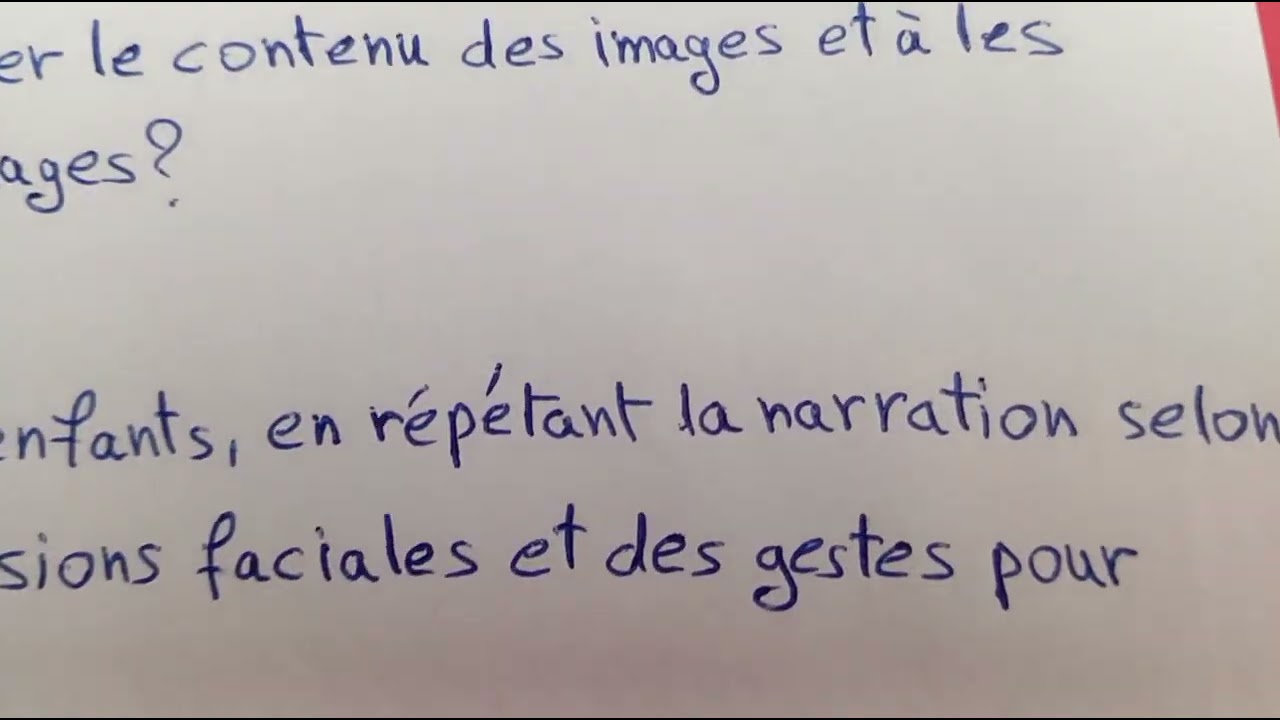 er le contenu des images et à les
ages?
enfants, en répétant la narration selon
sions faciales et des gestes pour